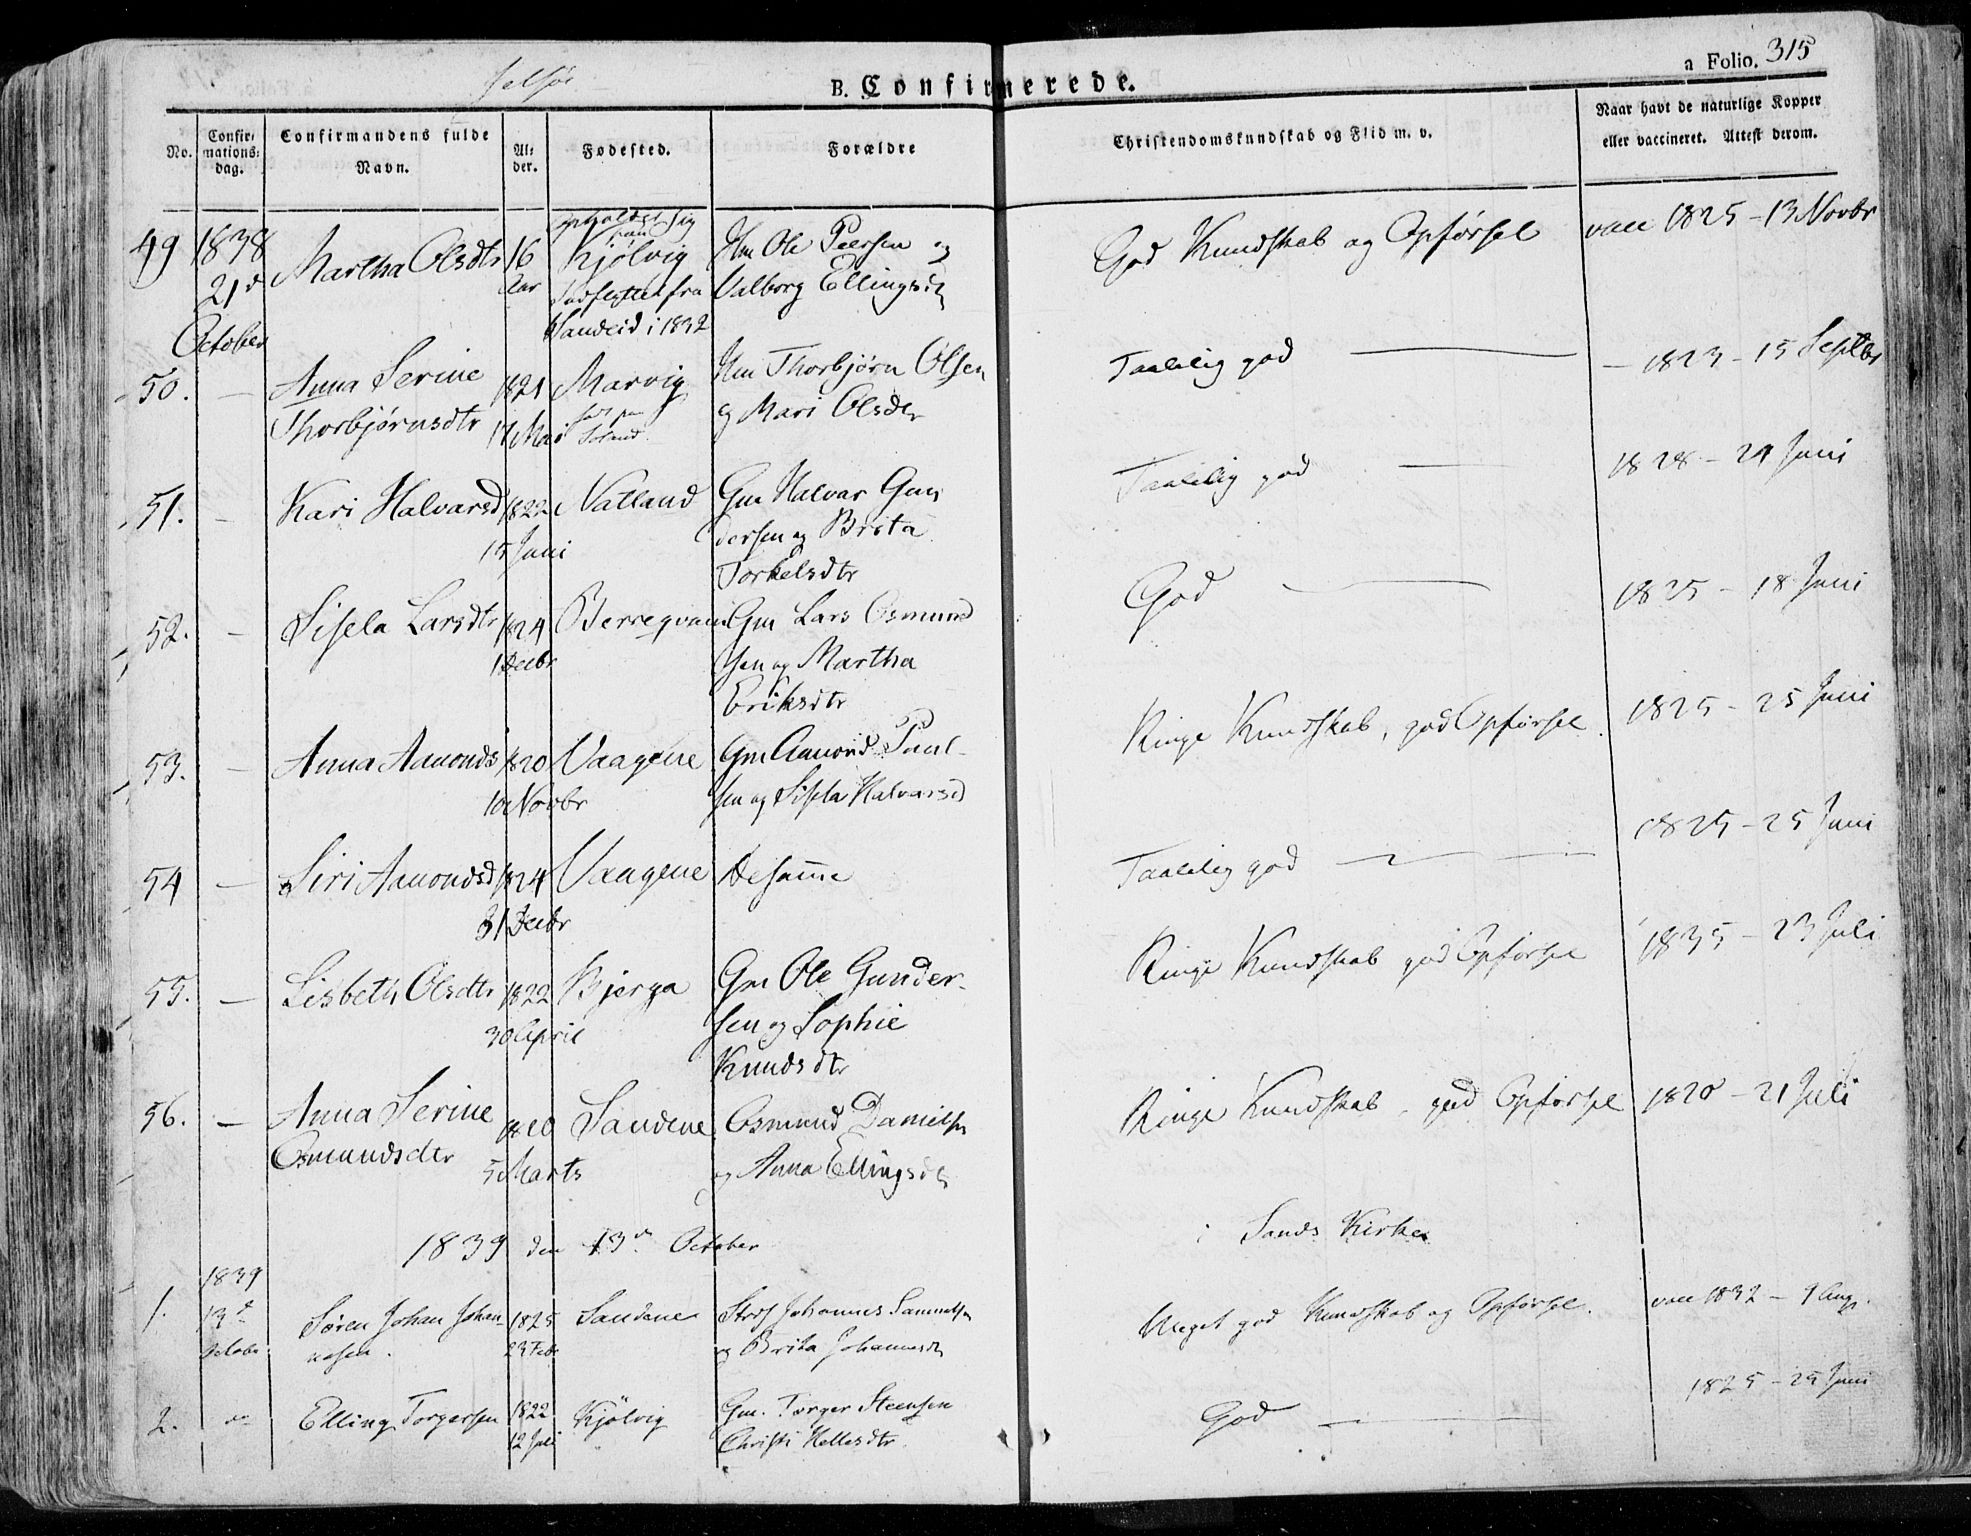 Jelsøe
B. Confirmerede.
a Folio. 315
No.
Confir-
mations-
dag.
Confirmandens fulde
Navn.
Al-
der.
Fødested.
Forældre
Christendomskundskab og Flid m. v.
Naar havt de naturlige Kopper
eller vaccineret. Attest derom.
49 1838 21de October Martha Olsdtr 16 Aar opholdet sig paa Kjølvig Indflyttet fra Sandeid i 1832 Hm Ole Peersen og Valborg Ellingsdtr God Kundskab og Opførsel vacc 1825 - 13 Novbr
50. — Anna Serine Thorbjørnsdtr 1821 17 Mai Marvig Hm Thorbjørn Olsen og Mari Olsdtr Taalelig god — 1823 - 15 Septbr
51. — Kari Halvarsd 1822 15 Juni Natland Gm Halvar Gun
dersen og Brita
Torkelsdtr Taalelig god — 1828 - 24 Juni
52. — Sisela Larsdtr 1824 1 Decbr Berreqvam Gm Lars Osmund
sen og Martha
Eriksdtr God — 1825 - 18 Juni
53. — Anna Aamonds 1820 10 Novbr Vaagene Gm Aamond Paul-
sen og Sisela Halvarsd Ringe Kundskab, god Opførsel. 1825 - 25 Juni
54 — Siri Aamondsd 1824 31 Decbr Vaagene De samme Taalelig god — 1825 - 25 Juni
55. — Lisbeth Olsdtr 1822 30 April Bjerga Gm Ole Gunder-
sen og Sophie
Knudsdtr Ringe Kundskab god Opførsel 1835 - 23 Juli
56. — Anna Serine
Osmundsdtr 1820 5 Marts Sandene Osmund Danielsen
og Anna Ellingsdtr Ringe Kundskab, god Opførsel 1820 - 21 Juli
1839 den 13de October i Sands Kirke
1. 1839 13de October Søren Johan Johan-
nesen. 1825 23 Febr Sandene Strds Johannes Samuelsen
og Brita Johannesdtr Meget god Kundskab og Opførsel. vacc 1832 - 9 Aug.
2. Elling Torgersen 1822 12 Juli Kjølvig Gm. Torger Steensen
Christi Hellesdtr. God — 1825 - 25 Juni